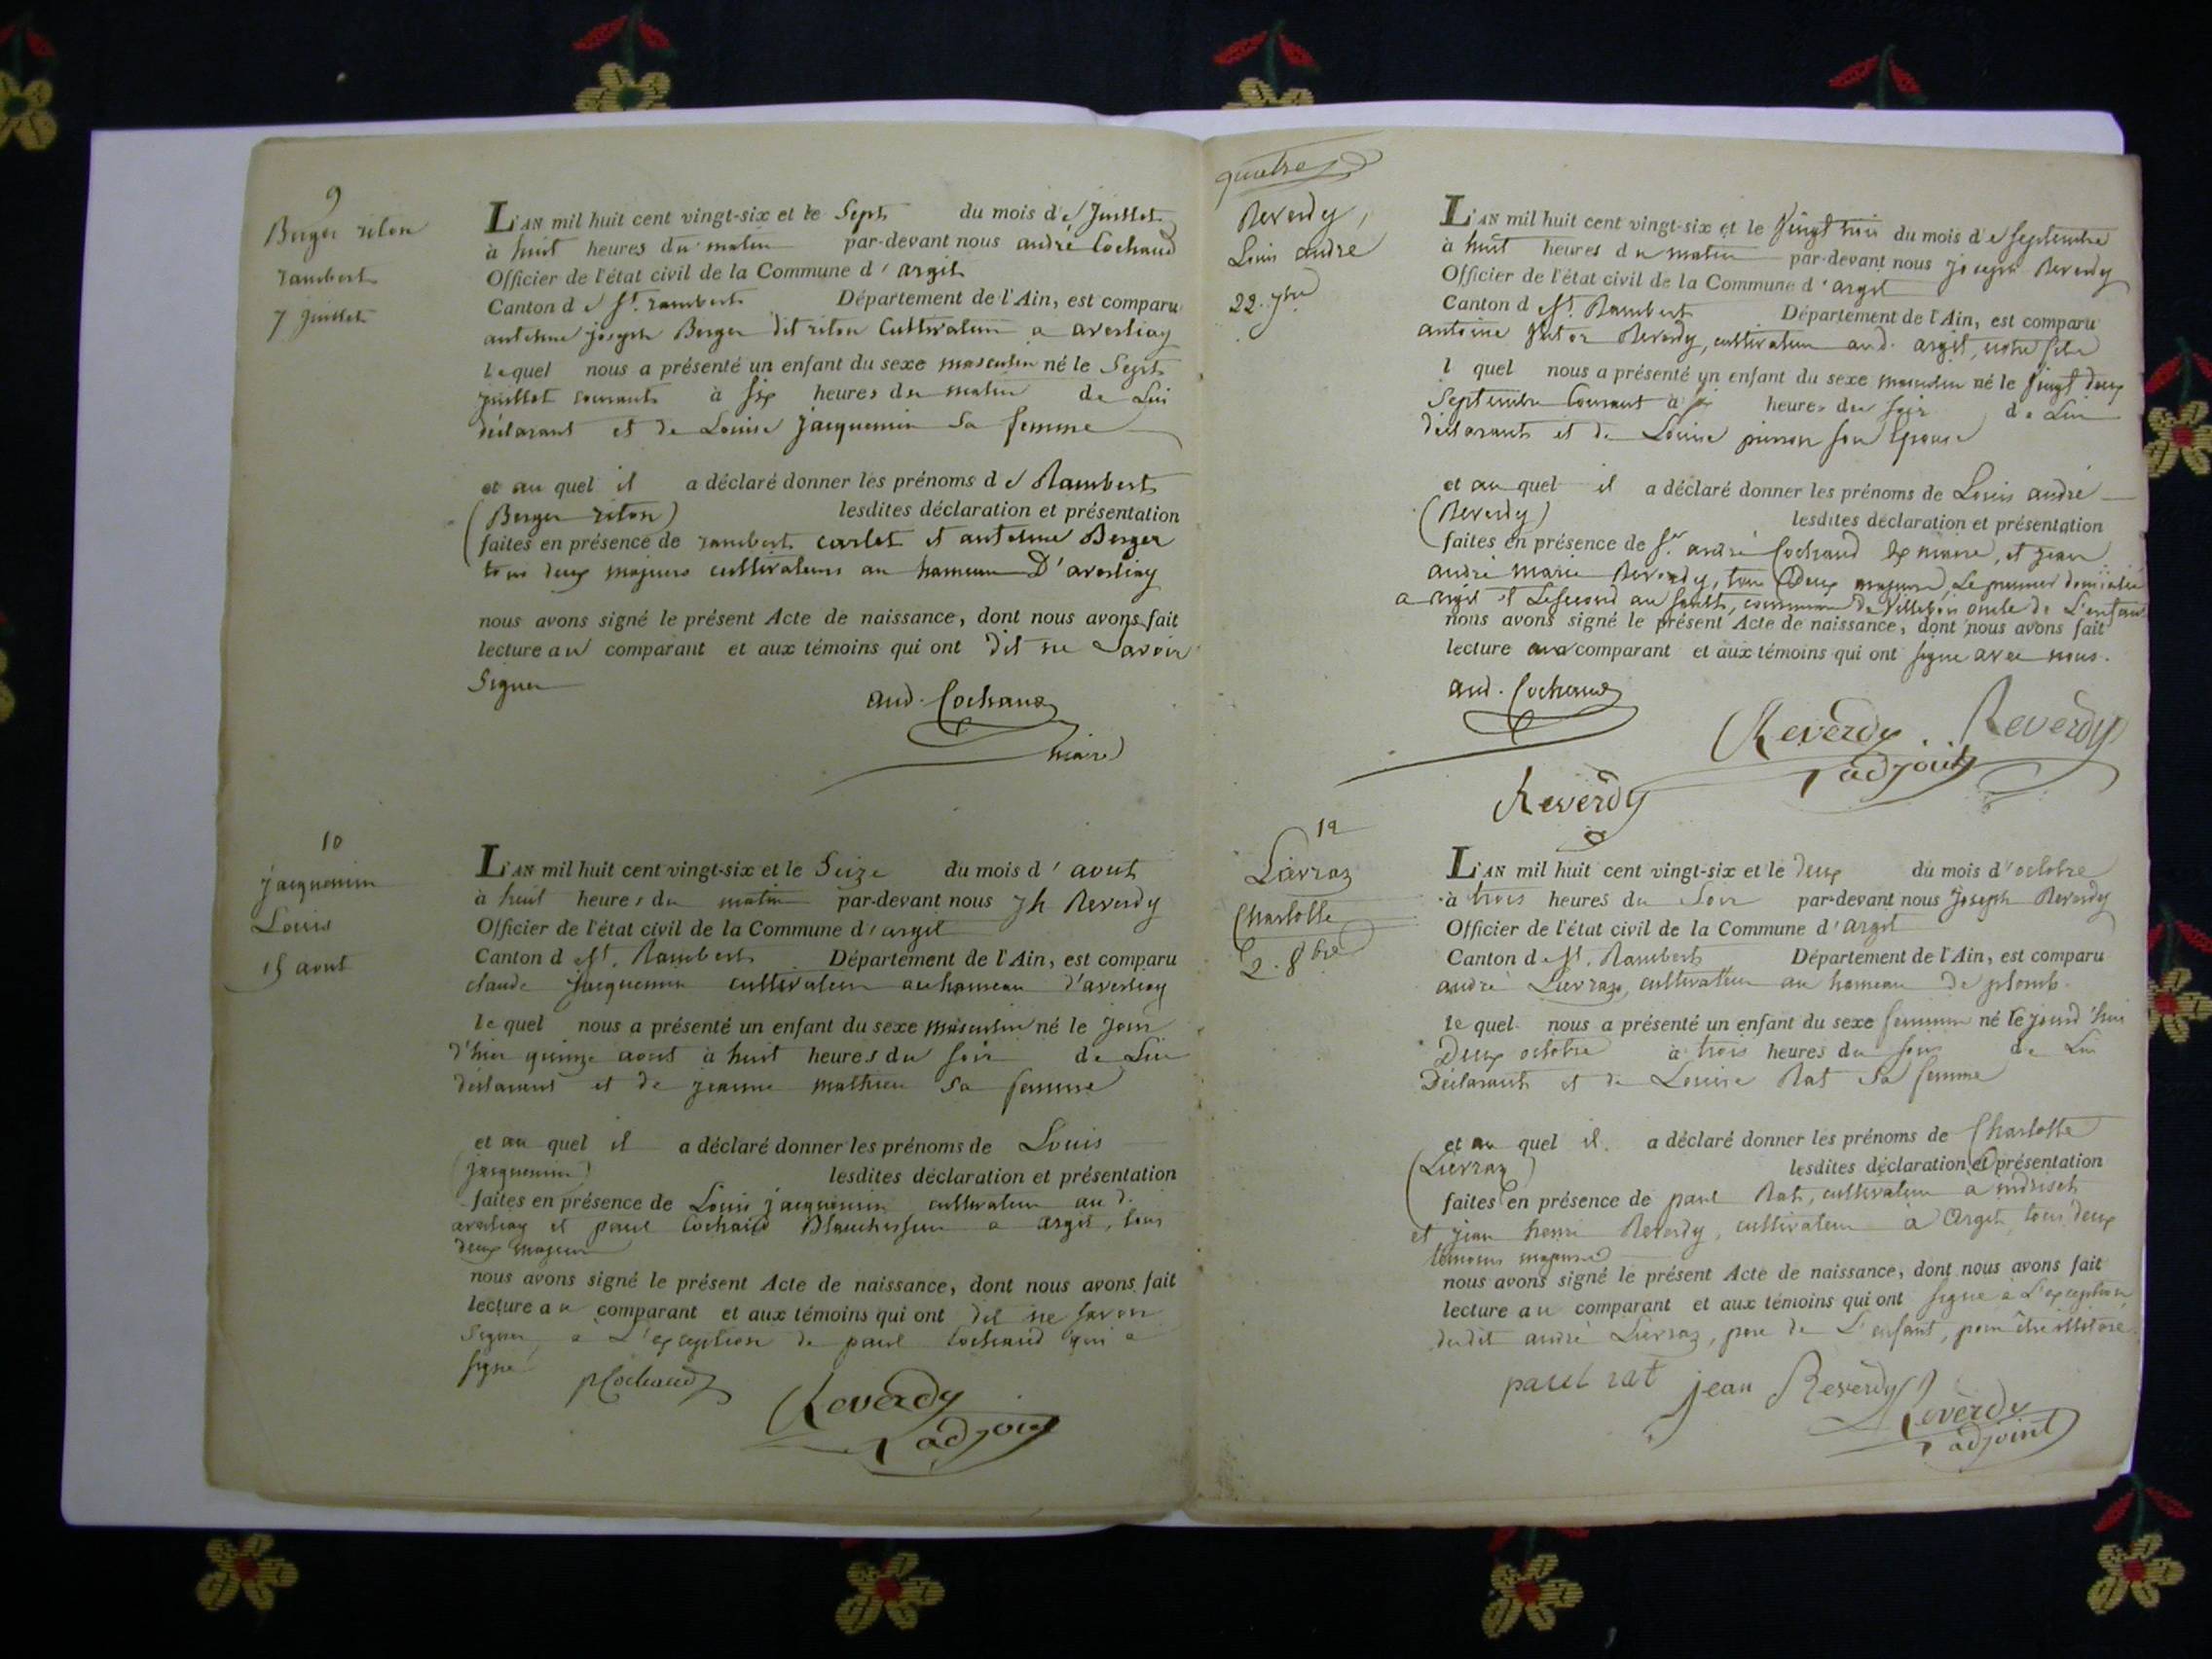 9
Berger riton
rambert
7 juillet
L'AN mil huit cent vingt-six et le Sept du mois de Juillet
à huit heures du matin par-devant nous andré Cochaud
Officier de l'état civil de la Commune d'argit
Canton de St. rambert Département de l'Ain, est comparu
antelme joseph Berger dit riton Cultivateur a averliay
lequel nous a présenté un enfant du sexe masculin né le Sept
juillet courant à six heures du matin de Lui
déclarant et de Louise jacquemin sa femme
et au quel il a déclaré donner les prénoms de Rambert
(Berger riton) lesdites déclaration et présentation
faites en présence de rambert carlet et antelme Berger
tous deux majeurs cultivateurs au hameau D'averliay
nous avons signé le présent Acte de naissance, dont nous avons fait
lecture au comparant et aux témoins qui ont dit ne Savoir
Signer
and. Cochaud
maire
10
jacquemin
Louis
15 aout
L'AN mil huit cent vingt-six et le Seize du mois d'aout
à huit heures du matin par-devant nous jh Reverdy
Officier de l'état civil de la Commune d'argit
Canton de St. Rambert Département de l'Ain, est comparu
claude jacquemin cultivateur au hameau d'averliay
lequel nous a présenté un enfant du sexe masculin né le jour
d'hier quinze aout à huit heures du soir de Lui
déclarant et de jeanne mathieu sa femme
et au quel il a déclaré donner les prénoms de Louis
(jacquemin) lesdites déclaration et présentation
faites en présence de Louis jacquemin cultivateur au d.
averliay et paul Cochaud Blanchisseur a argit, tous
deux majeurs
nous avons signé le présent Acte de naissance, dont nous avons fait
lecture au comparant et aux témoins qui ont dit ne savoir
Signer, a L'exception de paul Cochaud qui a
signé
p Cochaud
Reverdy
adjoint
quatre
Reverdy,
Louis andre
22. 7bre
L'AN mil huit cent vingt-six et le Vingt trois du mois de septembre
à huit heures du matin par-devant nous joseph Reverdy
Officier de l'état civil de la Commune d'argit
Canton de St. Rambert Département de l'Ain, est comparu
antoine Reverdy, cultivateur aud. argit,
lequel nous a présenté un enfant du sexe masculin né le vingt deux
Septembre Courant à heures du soir de Lui
déclarant et de Louise son Epouse
et au quel il a déclaré donner les prénoms de Louis andré
(Reverdy) lesdites déclaration et présentation
faites en présence de Sr. andré Cochaud Ex maire, et jean
andré marie Reverdy, tous Deux majeurs, Le premier domicilié
a argit et Le second au commune de Villebois oncle de L'enfant
nous avons signé le présent Acte de naissance, dont nous avons fait
lecture au comparant et aux témoins qui ont signé avec nous.
and. Cochaud
Reverdy
adjoint
Reverdy
Reverdy
12
Livraz
Charlotte
2. 8bre
L'AN mil huit cent vingt-six et le deux du mois d'octobre
à trois heures du Soir par-devant nous Joseph Reverdy
Officier de l'état civil de la Commune d'argit
Canton de St. Rambert Département de l'Ain, est comparu
andré Livraz, cultivateur au hameau De plomb.
lequel nous a présenté un enfant du sexe feminin né le jourd'hui
Deux octobre à trois heures du soir de Lui
Déclarant et de Louise Rat sa femme
et au quel il a déclaré donner les prénoms de Charlotte
(Livraz) lesdites déclaration et présentation
faites en présence de paul Rat, cultivateur a
et jean henri Reverdy, cultivateur à Argit, tous deux
témoins majeurs
nous avons signé le présent Acte de naissance, dont nous avons fait
lecture au comparant et aux témoins qui ont signé a L'exception
dudit andré Livraz, pere de L'enfant, pour être illitéré.
paul rat
jean Reverdy
Reverdy
adjoint